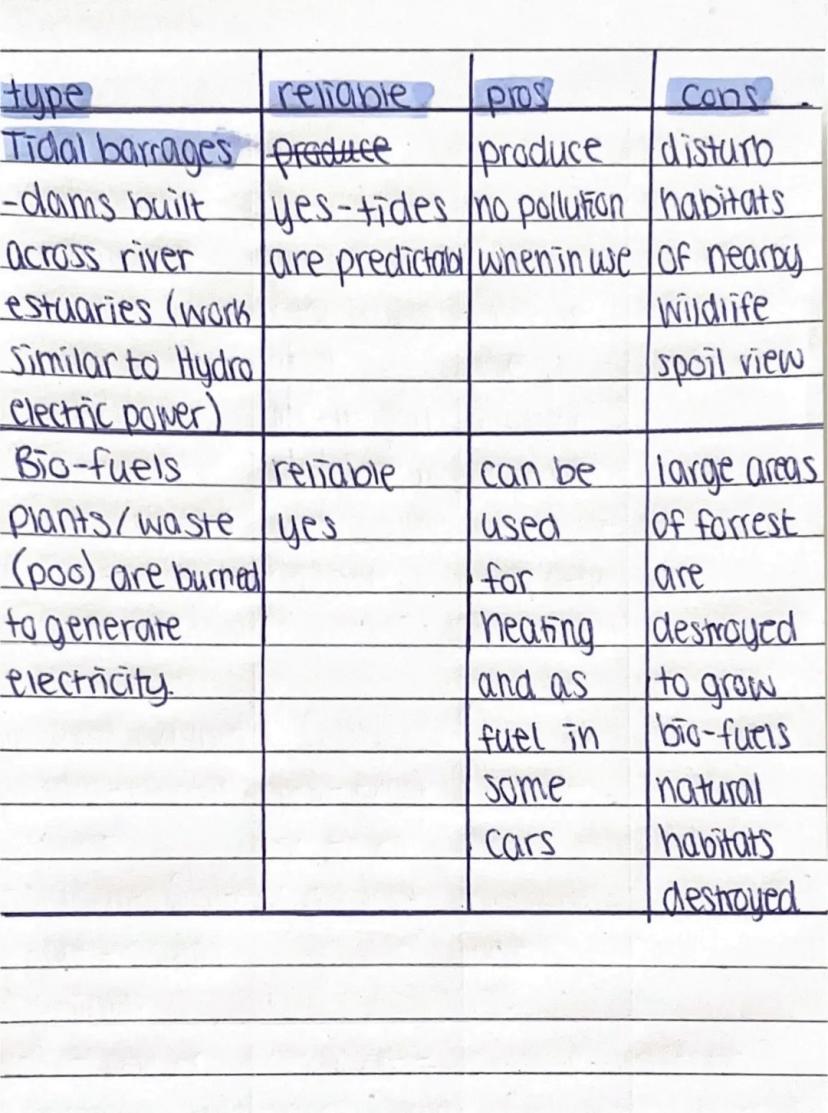 type reliable pros cons.
Tidal barrages produce produce disturb
-dams built yes-tides no pollution habitats
across river are predictabl when in use of nearby
estuaries (work wildlife
similar to Hydro spoil view
electric power)
Bio-fuels reliable can be large areas
plants/waste yes used of forrest
(poo) are burned for are
to generate heating destroyed
electricity. and as to grow
fuel in bio-fuels
some natural
cars habitats
destroyed